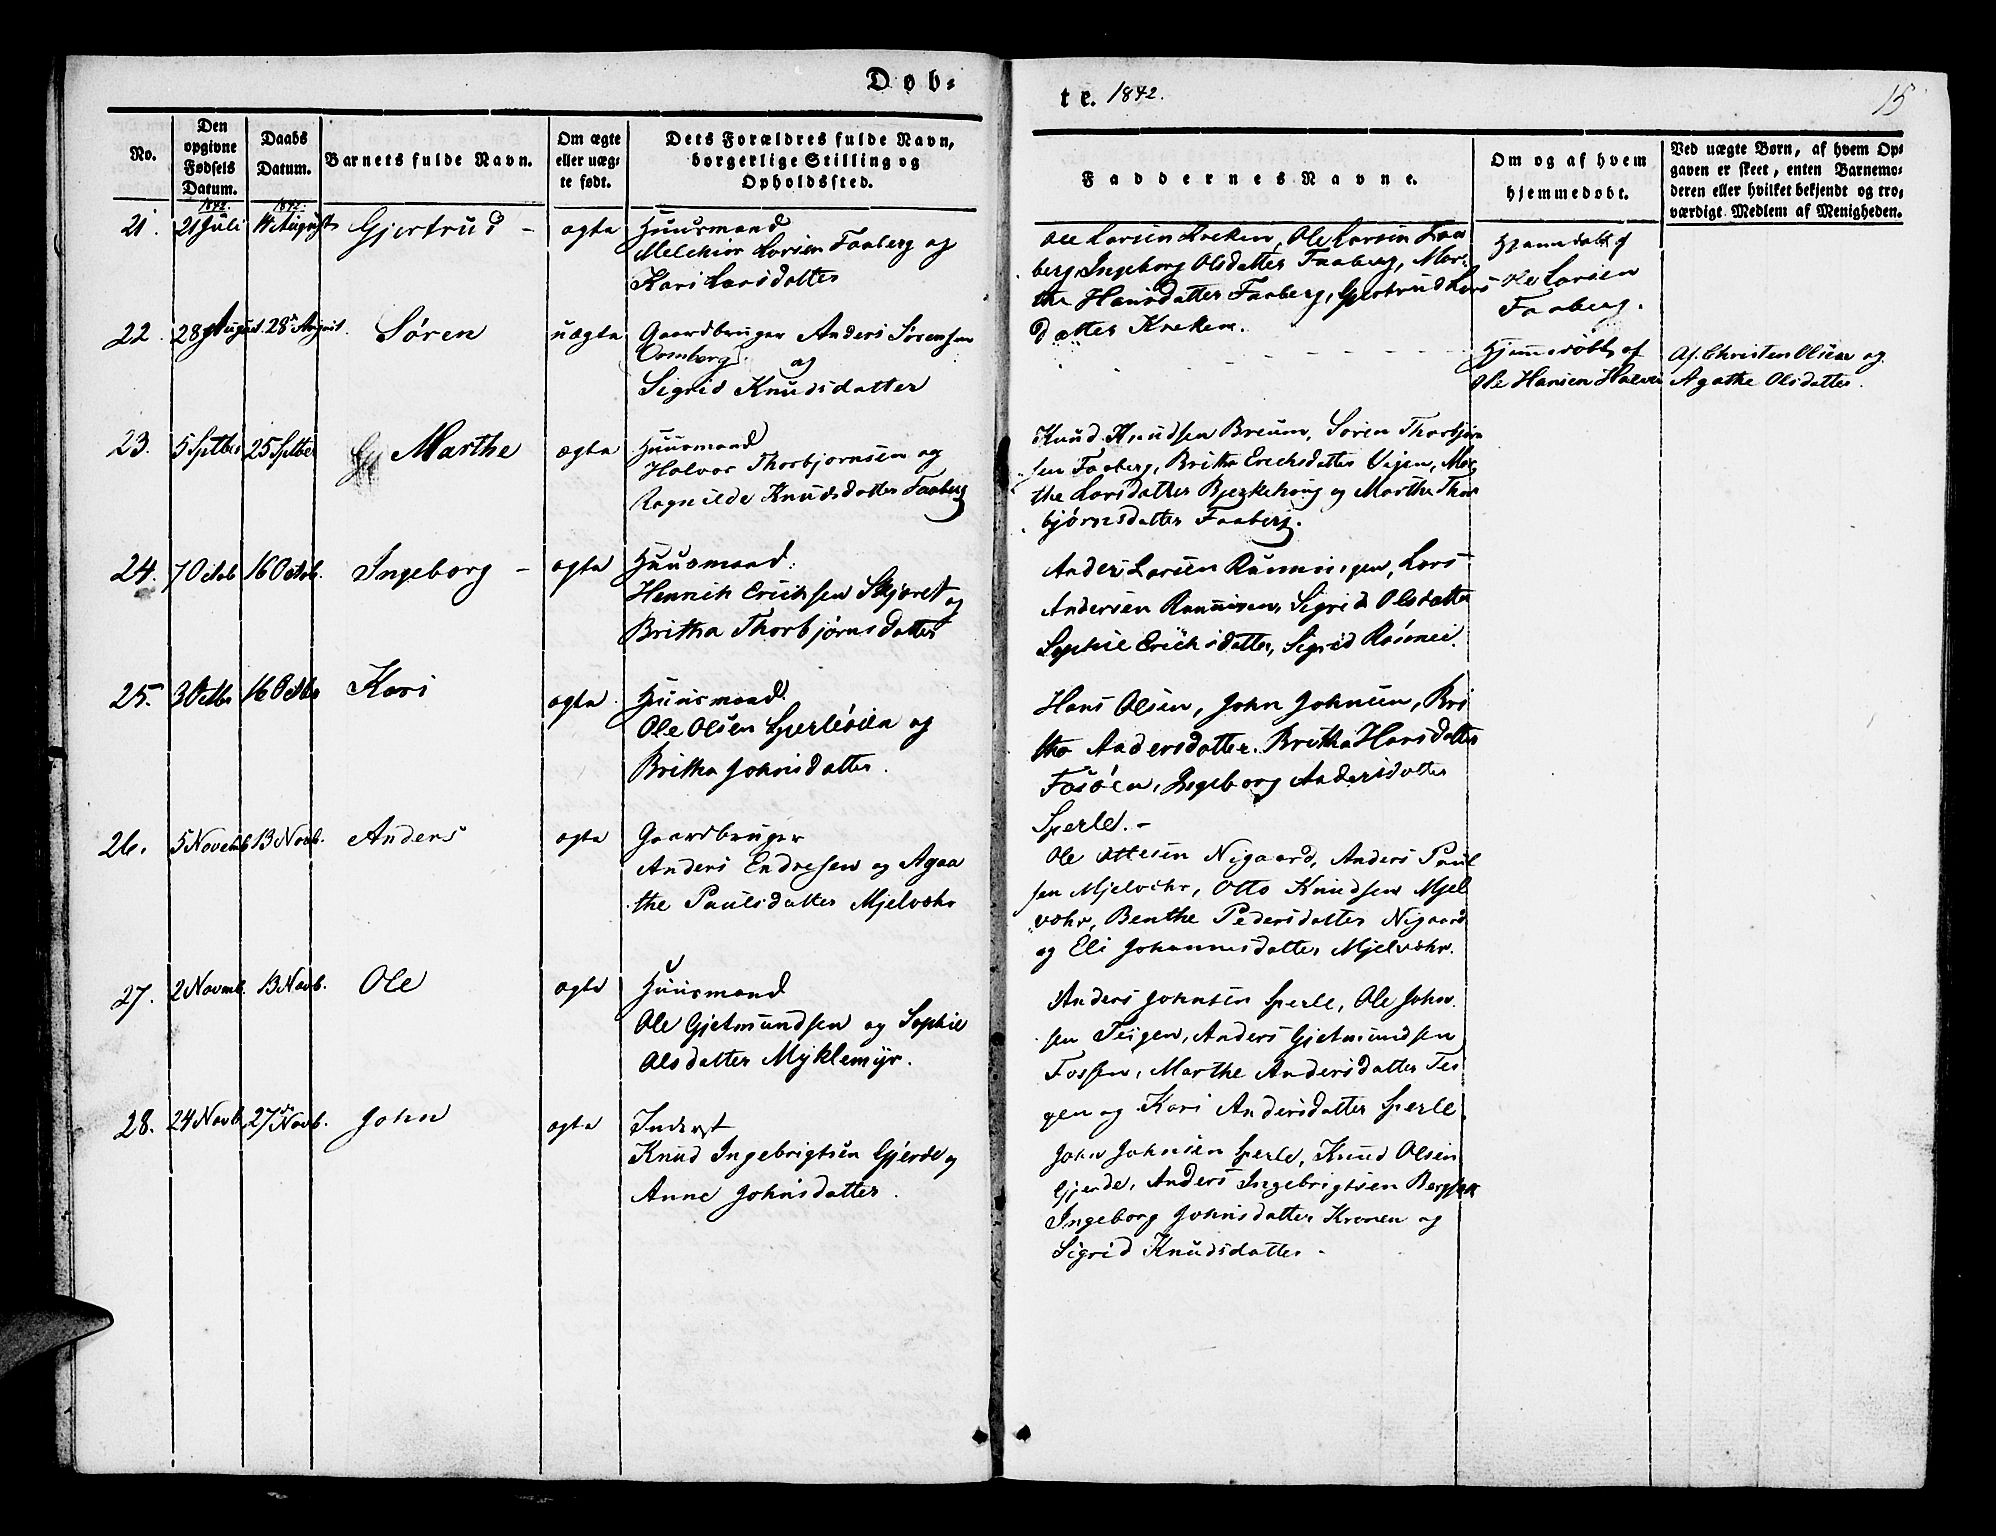 Døb-
te. 1842.
15
No.
Den opgivne Fødsels Datum.
Daabs Datum.
Barnets fulde Navn.
Om ægte eller uægte født.
Dets Forældres fulde Navn, borgerlige Stilling og Opholdssted.
Faddernes Navne.
Om og af hvem hjemmedøbt.
Ved uægte Børn, af hvem Opgaven er skeet, enten Barnemoderen eller hvilket bekjendt og troværdigt Medlem af Menigheden.
1842. 1842.
21. 21 Juli 14 August Gjertrud - ægte Huusmand
Melchior Larsen Faaberg og
Kari Larsdatter
Ole Larsen Kreken, Ole Larsen Faa
berg, Ingeborg Olsdatter Faaberg, Mar-
the Hansdatter Faaberg, Gjertrud Lars
datter Kreken.
Hjemmedøbt af
Ole Larsen
Faaberg.
22. 28 August 28de August. Søren uægte Gaardbruger Anders Sørensen
og
Sigrid Knudsdatter
Hjemmedøbt af
Ole Hansen
Af Christen Olsen og
Agathe Olsdatter.
23. 5 Septber 25 Septber Marthe ægte Huusmand
Halvor Thorbjørnsen og
Ragnilde Knudsdatter Faaberg
Knud Knudsen Breum, Søren Thorbjørn
sen Faaberg, Britha Erichsdatter Vigen, Mar
the Larsdatter Bjerkehoug og Marthe Thor
bjørnsdatter Faaberg.
24. 7 Octob 16 Octob. Ingeborg - ægte Huusmand.
Henrich Erichsen Skjæret og
Britha Thorbjørnsdatter
Anders Larsen Rønningen, Lars
Andersen Rønningen, Sigrid Olsdatter
Sophie Erichsdatter, Sigrid
25. 3 Octbr 16 Octbr Kari ægte. Huusmand
Ole Olsen Sperleøien og
Britha Johnsdatter.
Hans Olsen, John Johnsen, Bri
tha Andersdatter. Britha Hansdatter
Fosøen, Ingeborg Andersdatter
Sperle. -
26. 5 Novemb 13 Novb. Anders ægte Gaardbruger
Anders Endresen og Agaa
the Paulsdatter Mjelvæhr
Ole Ottesen Nigaard, Anders Paul
sen Mjelvehr, Otto Knudsen Mjel
væhr, Benthe Pedersdatter Nigaard
og Eli Johannesdatter Mjelvæhr.
27. 2 Novmb. 13 Novb. Ole ægte Huusmand
Ole Gjetmundsen og Sophie
Olsdatter Myklemyr.
Anders Johnsen Sperle, Ole John
sen Teigen, Anders Gjetmundsen
Fossen, Marthe Andersdatter Tei
gen og Kari Andersdatter Sperle
28. 24 Novb. 27de Novb. John ægte Inderst
Knud Ingebrigtsen Gjerde og
Anne Johnsdatter.
John Johnsen Sperle, Knud Olsen
Gjerde, Anders Ingebrigtsen
Ingeborg Johnsdatter Kronen og
Sigrid Knudsdatter -